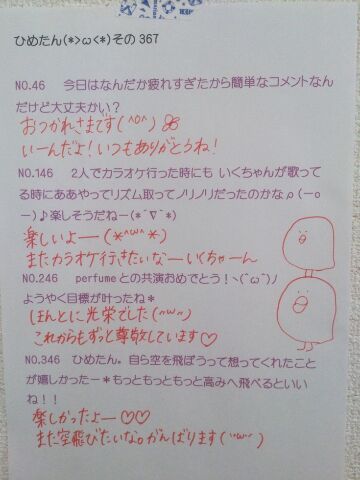 ひめたん(*>ω<*)その367
NO.46　今日はなんだか疲れすぎたから簡単なコメントなん
だけど大丈夫かい？
おつかれさまです(^o^)
いーんだよ！いつもありがとうね！
NO.146　2人でカラオケ行った時にも いくちゃんが歌って
る時にああやってリズム取ってノリノリだったのかなρ(ーo
ー)♪楽しそうだねー(*´∇`*)
楽しいよー(*^w^*)
またカラオケ行きたいなーいくちゃーん
NO.246　perfumeとの共演おめでとう！ヽ(´ω`)ノ
ようやく目標が叶ったね＊
ほんとに光栄でした(^w^)
これからもずっと尊敬しています♡
NO.346　ひめたん。自ら空を飛ぼうって想ってくれたこと
が嬉しかったー＊もっともっともっと高みへ飛べるといい
ね！！
楽しかったよー♡♡
また空飛びたいな。がんばります(˘w˘)